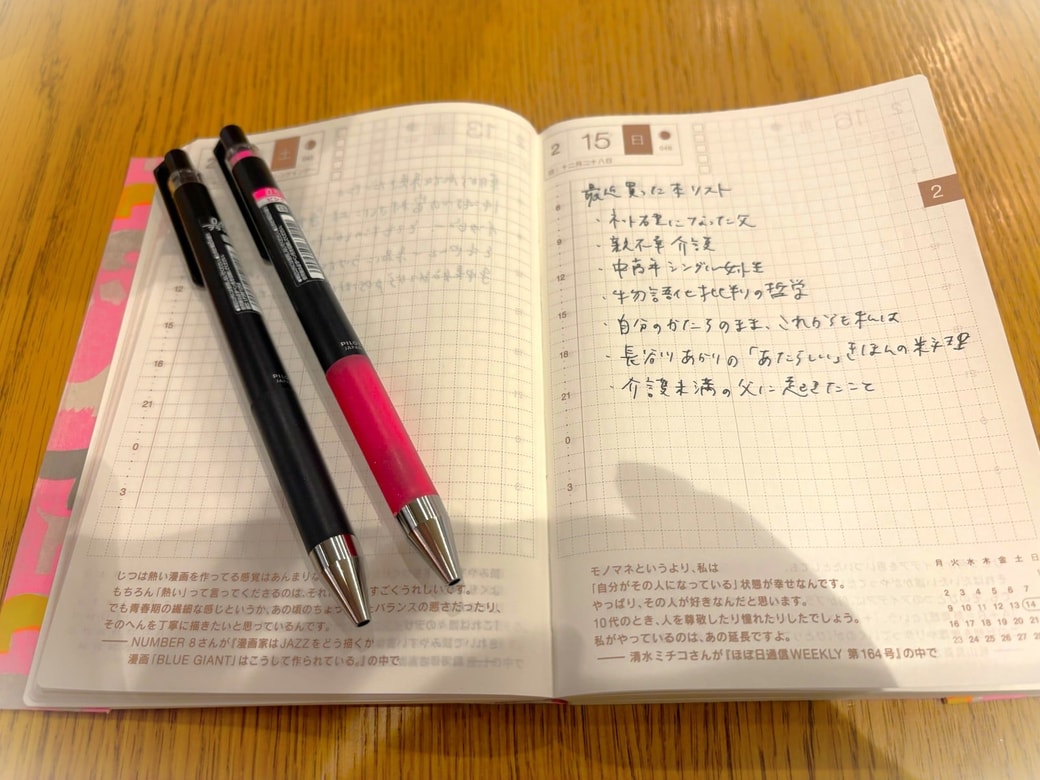 土
12
15
18
21
0
3
PILOT
JAPAN
PILOT
じつは熱い漫画を作ってる感覚はあんまりな
もちろん「熱い」って言ってくださるのは、それ すごくうれしいです。
でも青春期の繊細な感じというか、あの頃のちょっ バランスの悪さだったり、
そのへんを丁寧に描きたいと思っているんです。
── NUMBER 8さんが『漫画家はJAZZをどう描くか
漫画「BLUE GIANT」はこうして作られている。』の中で
2 15 日
546
十二月二十八日
2
最近買った本リスト
・ネット右翼になった父
・親不孝介護
・中高年シングル女性
・物語化批判の哲学
・自分のかたちのまま、これからも私は
・長谷川あかりの「あたらしい」きほんの料理
・介護未満の父に起きたこと
8
9
12
15
18
21
0
3
モノマネというより、私は
「自分がその人になっている」状態が幸せなんです。
やっぱり、その人が好きなんだと思います。
10代のとき、人を尊敬したり憧れたりしたでしょう。
私がやっているのは、あの延長ですよ。
── 清水ミチコさんが『ほぼ日通信WEEKLY 第164号』の中で
月 火 水 木 金 土 日
2 3 4 5 6 7 8
9 10 11 12 13 14
16 17 18 19 20 21
23 24 25 26 27 28